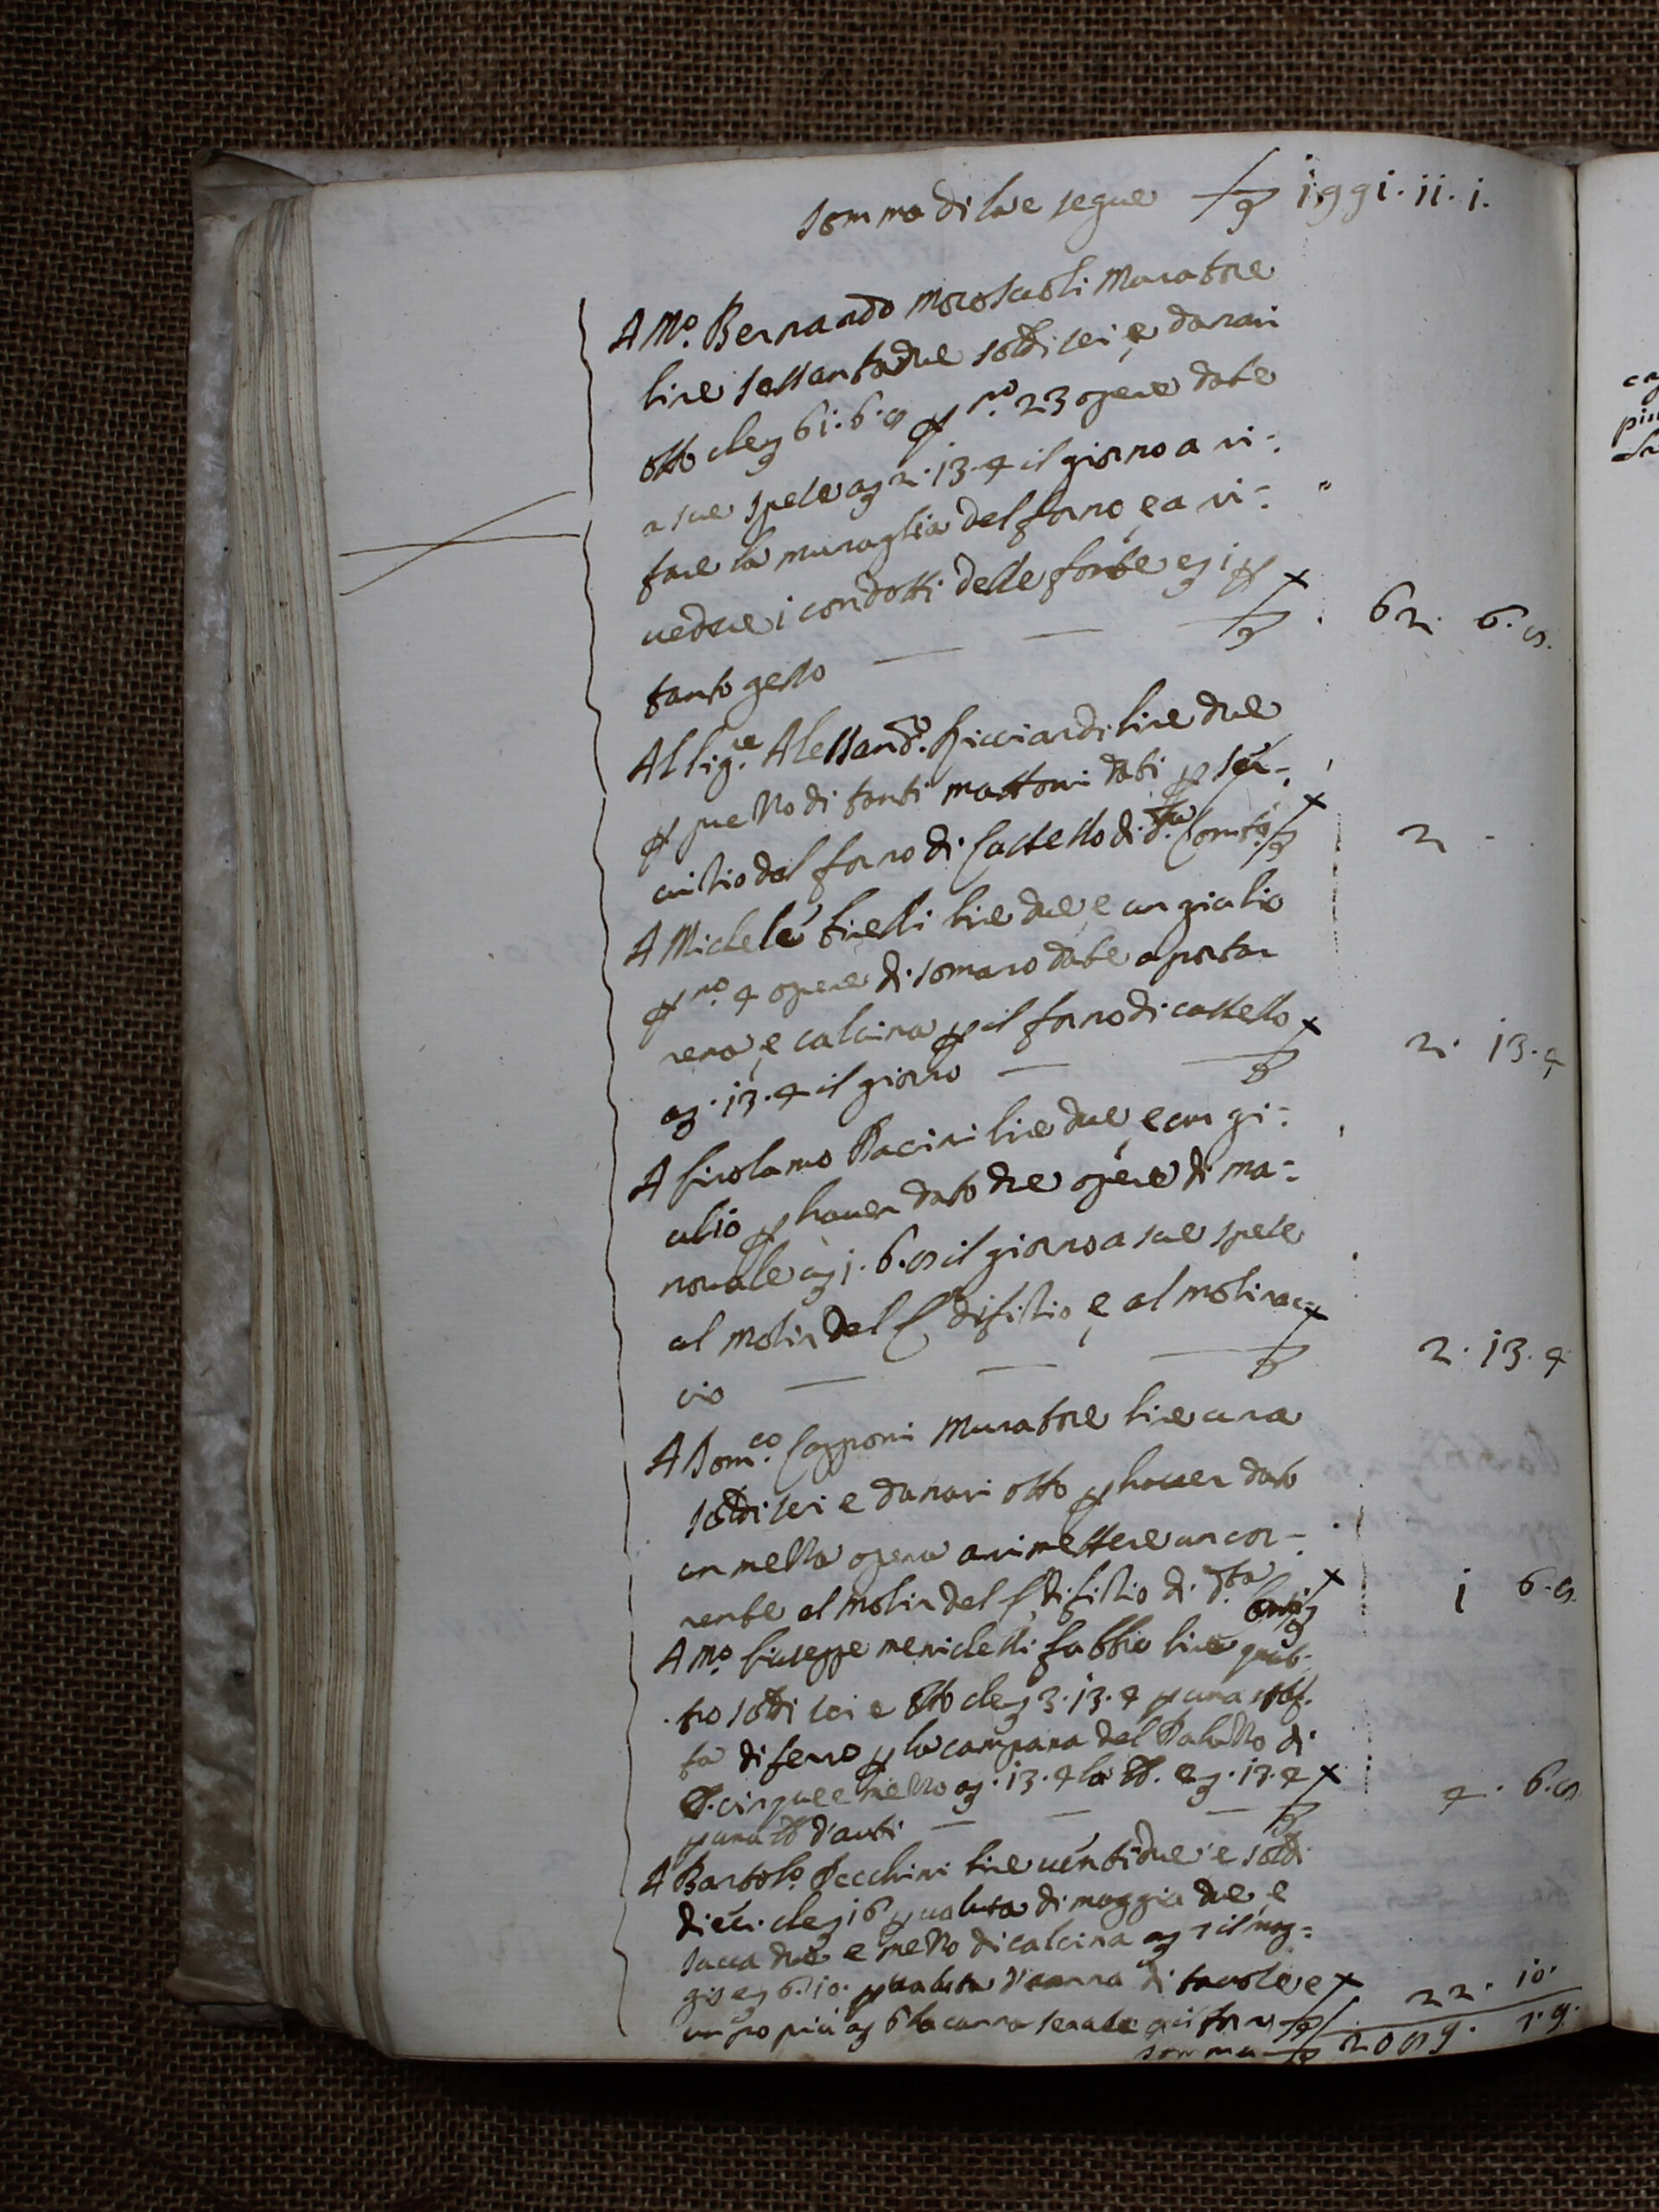 Somma di la e segue £ 1991. 11. 1.
A Mº. Bernardo Moroscioli Muratore
lire sessantadue soldi sei e danari
otto che £ 61. 6. 8 p nº 23 opere date
a sue spese a £ 2. 13. 4 il giorno a ri=
fare la muraglia del forno, e a ri=
vedere i condotti delle fonte e £ 1 p
tanto gesso — — £ 62. 6. 8.
Al Sig.re Alessandº. Ricciardi lire due
p prezzo di tanti mattoni dati p ser=
vitio del forno di Castello di d.ta Comtà £ 2 -
A Michele Firelli lire due, e un giulio
p nº 4 opere di somaro date a portar
rena, e calcina p il forno di castello
a £ . 13. 4 il giorno — £ 2. 13. 4
A Girolamo Pacini lire due, e un gi=
ulio p haver dato due opere di ma=
novale a £ 1. 6. 8 il giorno a sue spese
al Molin del Difitio, e al molinac=
cio — — £ 2. 13. 4
A Dom.co Capponi Muratore lire una
soldi sei e danari otto p haver dato
un mezza opera a rimettere un cor=
rente al molin del Difitio di d.ta Comtà £ 1 6. 8
A Mº Giuseppe menichetti fabbro lire quat=
tro soldi sei e otto che £ 3. 13. 4 p una
ta di ferro p la campana del Palazzo di
lb. cinque e mezzo a £ . 13. 4 la lb. e £ . 13. 4
p una lb d'auti — — £ 4. 6. 8
A Bartolº. Pecchini lire ventidue e soldi
dieci che £ 16 p valuta di moggia due, e
sacca due e mezzo di calcina a £ 7 il mog=
gio e £ 6. 10. p valuta d' canna di tavole e
un po più a £ 6 la canna £ 22. 10.
Somma £ 2089. 7. 9.